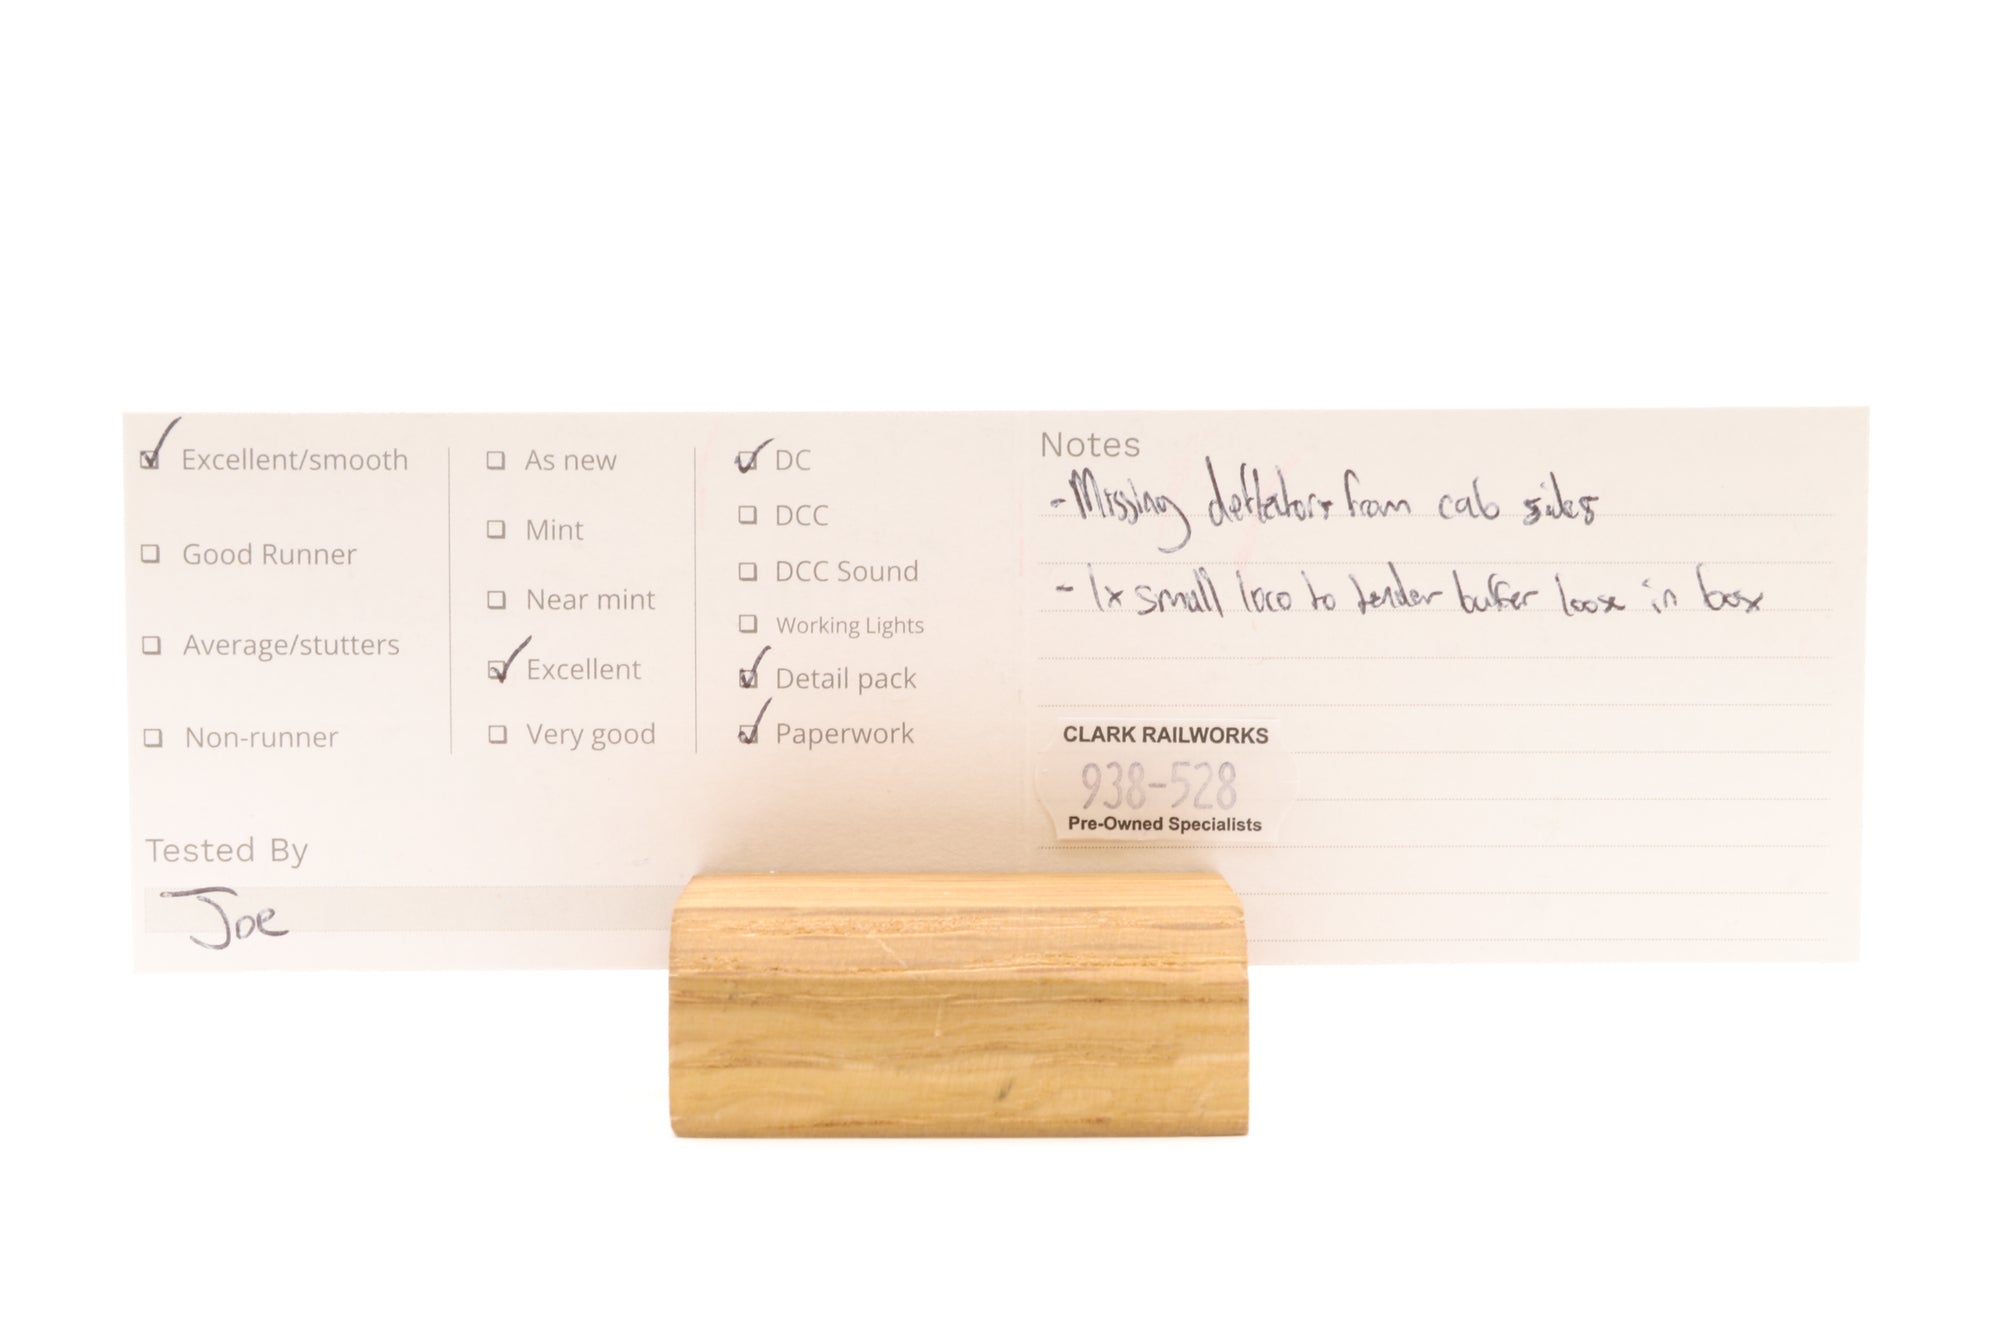 Excellent/smooth
Good Runner
Average/stutters
Non-runner
As new
Mint
Near mint
Excellent
Very good
DC
DCC
DCC Sound
Working Lights
Detail pack
Paperwork
Tested By
Joe
Notes
- Missing deflators from cab sides
- 1x small loco to tender buffer loose in box
CLARK RAILWORKS
938-528
Pre-Owned Specialists